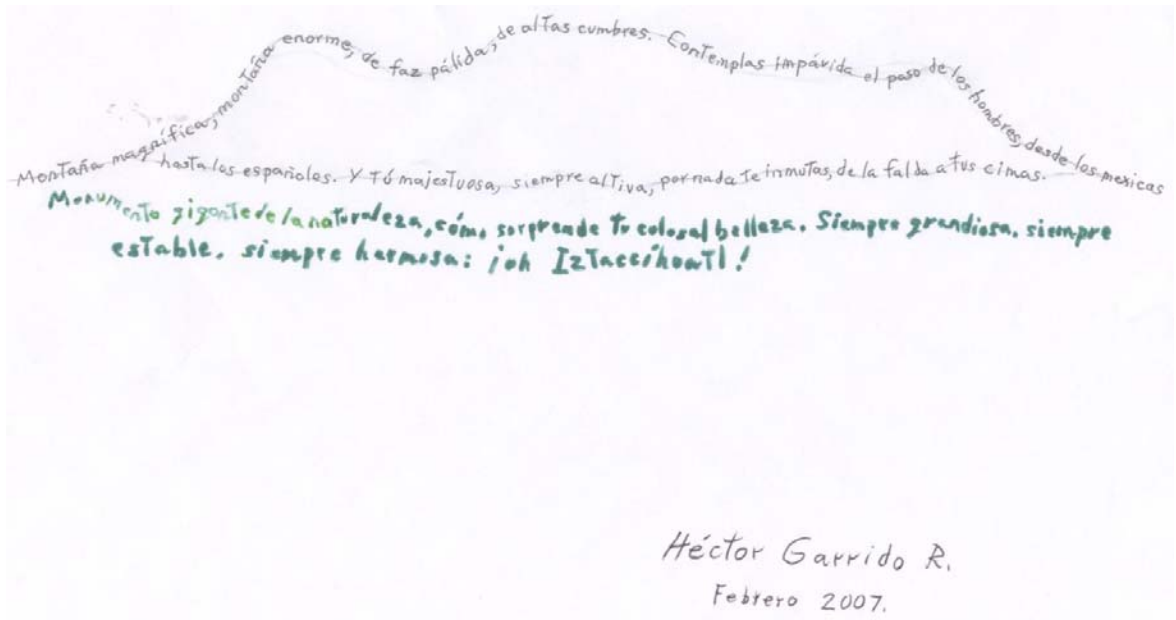 Montaña magnífica, montaña enorme, de faz pálida, de altas cumbres. Contemplas impávida el paso de los hombres, desde los mexicas
hasta los españoles. Y tú majestuosa, siempre altiva, por nada te inmutas, de la falda a tus cimas.
Monumento gigante de la naturaleza, cómo sorprende tu colosal belleza. Siempre grandiosa, siempre
estable, siempre hermosa: ¡oh Iztaccíhuatl!
Héctor Garrido R.
Febrero 2007.